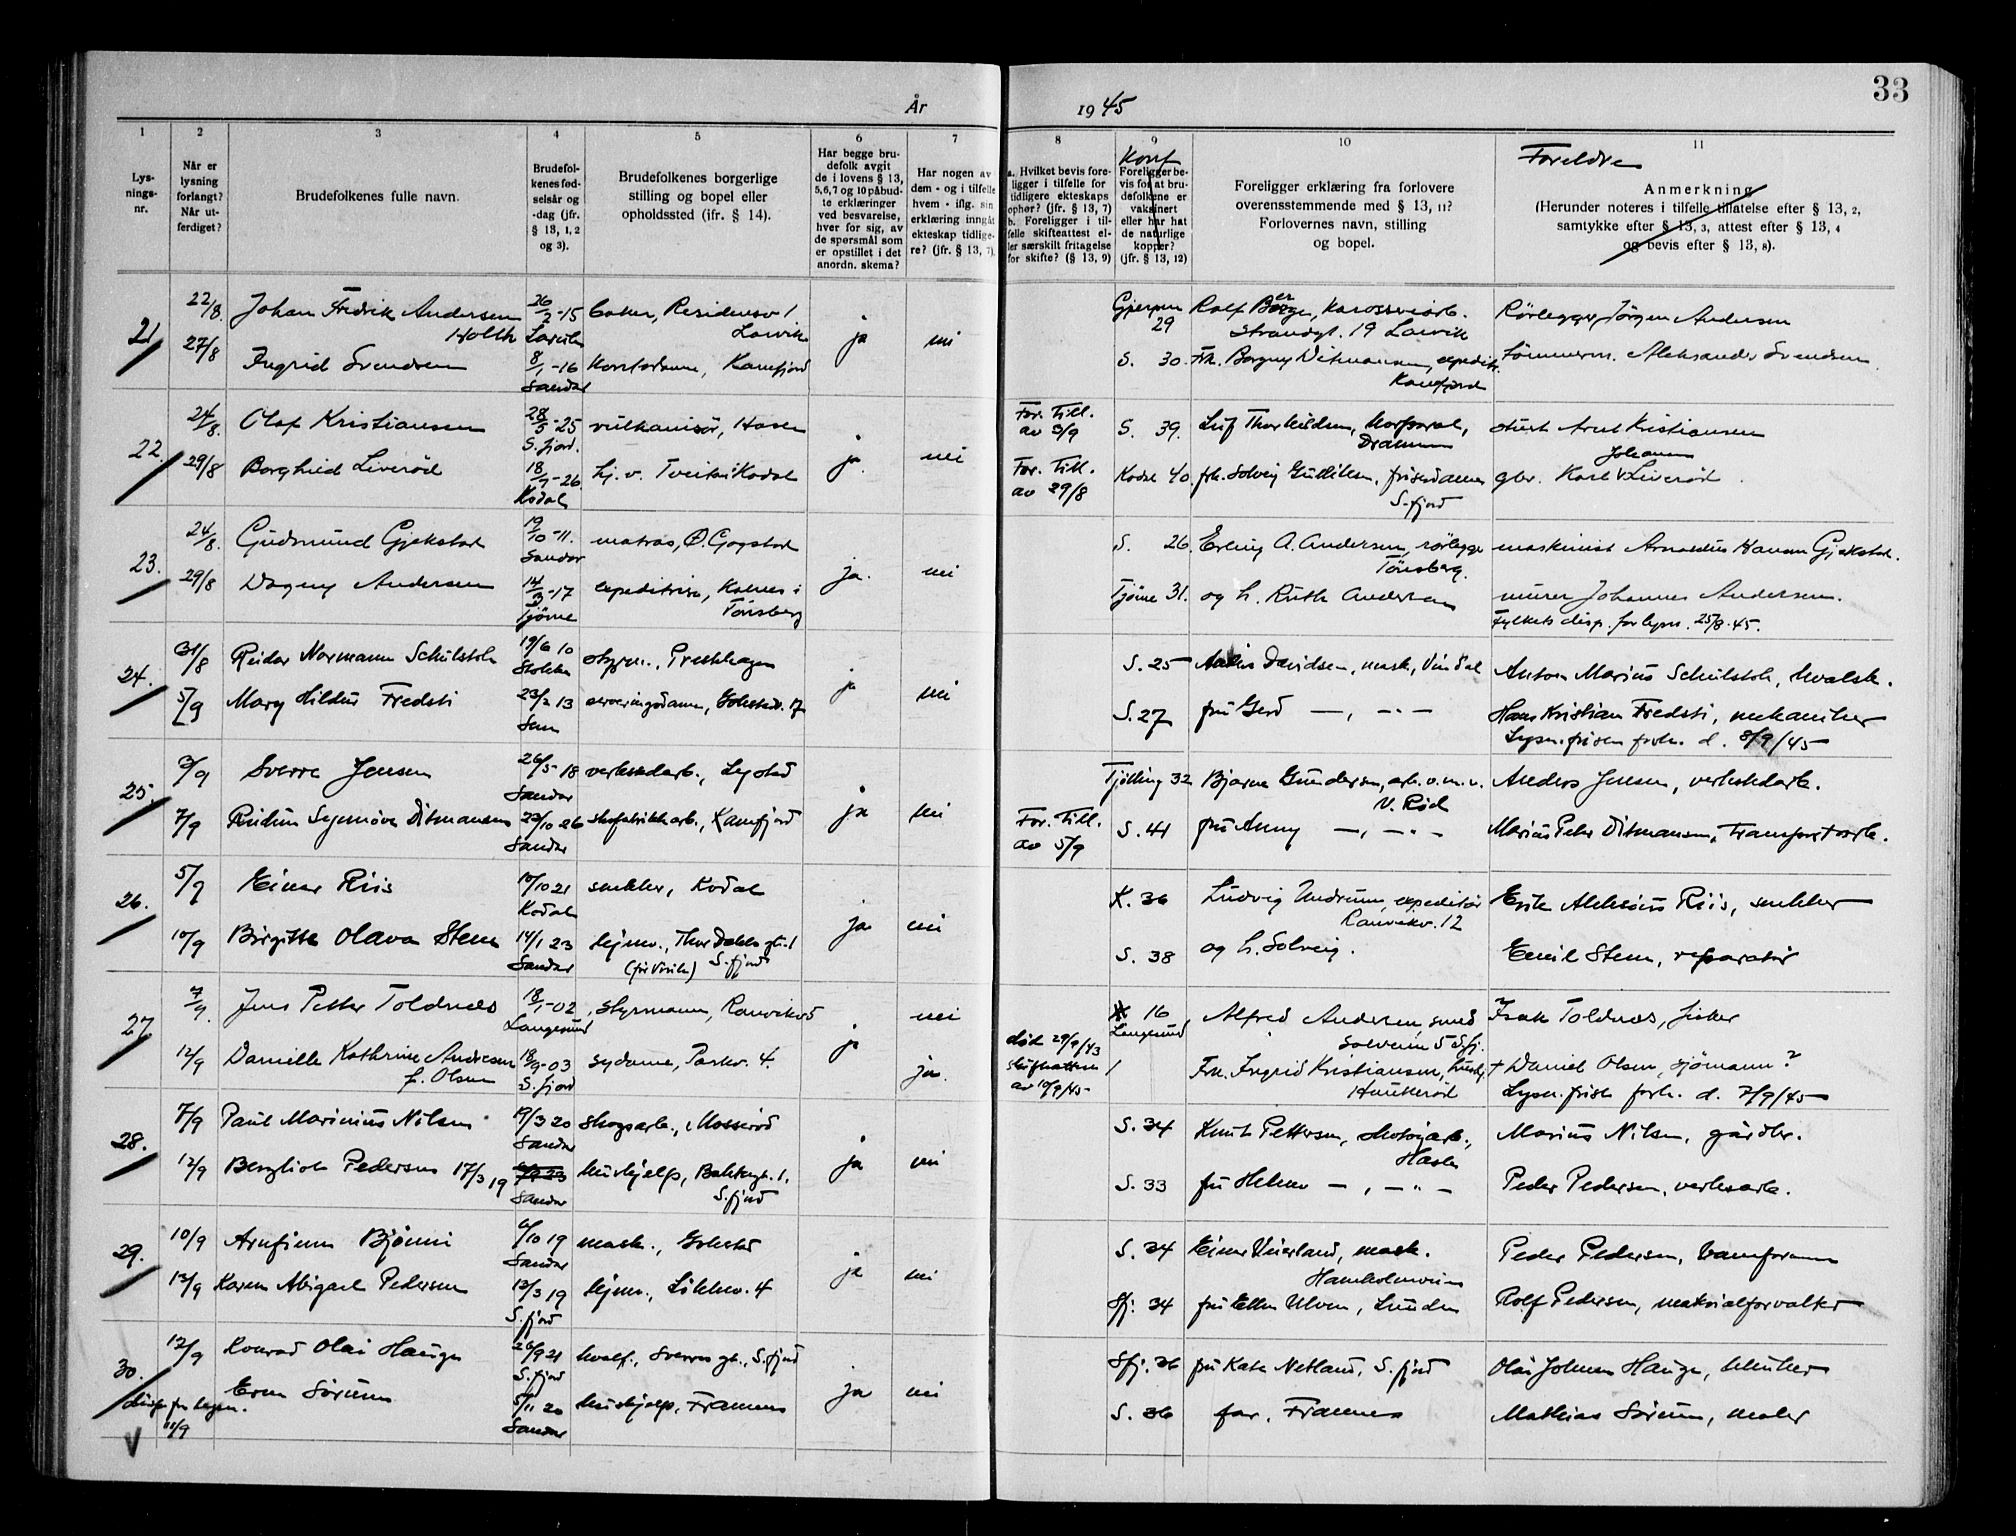 33
År 1945
1 2 3 4 5 6 7 8 9 10 11
Lys-
nings-
nr.
Når er
lysning
forlangt?
Når ut-
ferdiget?
Brudefolkenes fulle navn.
Brudefol-
kenes fød-
selsår og
-dag (jfr.
§ 13, 1, 2
og 3).
Brudefolkenes borgerlige
stilling og bopel eller
opholdssted (ifr. § 14).
Har begge bru-
defolk avgit
de i lovens § 13,
5,6,7 og 10 påbud-
te erklæringer
ved besvarelse,
hver for sig, av
de spørsmål som
er opstillet i det
anordn. skema?
Har nogen av
dem - og i tilfelle
hvem - iflg. sin
erklæring inngått
ekteskap tidlige-
re? (jfr. § 13, 7).
a. Hvilket bevis fore-
ligger i tilfelle for
tidligere ekteskaps
ophør? (jfr. § 13, 7)
b. Foreligger i til-
felle skifteattest el-
ler særskilt fritagelse
for skifte? (§ 13, 9)
Konf
Foreligger be-
vis for at bru-
defolkene er
vaksinert
eller har hat
de naturlige
kopper?
(jfr. § 13, 12)
Foreligger erklæring fra forlovere
overensstemmende med § 13, 11?
Forlovernes navn, stilling
og bopel.
Foreldre
Anmerkning
(Herunder noteres i tilfelle tillatelse efter § 13, 2,
samtykke efter § 13, 3, attest efter § 13, 4
og bevis efter § 13, 8).
21 22/8. Johan Fredrik Andersen 26/2-15 baker, Residensv 1 ja nei Gjerpen Rolf Børge, Strandgt. 19 Larvik Rørlegger Jørgen Andersen
Holth Larvik Larvik 29
27/8 Ingrid Svendsen 8/1-16 kontordame, Kamfjord S. 30. Frk. Borgny Ditmansen, expeditr. Tømmerm. Aleksander Svendsen
Sandar Kamfjord
22. 24/8. Olaf Kristiansen 28/5-25 vulkanisør, Hasen ja. nei For. Till. av 3/9 S. 39. Leif Thorkildsen, Drammen Arnt Kristiansen
S. fjord.
29/8 Borghild Liverød 18/7-26. hj. v. Tveiten Kodal For. Till. av 29/8 Kodal 40. frk. Solveig Gulliksen, frisørdame gbr. Karl Johann Liverød
Kodal S. fjord
23. 24/8. Gudmund Gjekstad 19/10-11. matros, Ø. Gogstad ja. nei S. 26. Erling A. Andersen, rørlegger maskinist Arnoldus Hansen Gjekstad.
Sandar Tønsberg.
29/8 Dagny Andersen 14/3-17 expeditrise, Kalnes i Tønsberg Tjøme 31. og h. Ruth Andersen murer Johannes Andersen.
Tjøme Fylkets disp. for lysn. 25/8-45.
24. 31/8 Reidar Normann Schulstok 19/6 10 styrm., Prestehagen ja nei S. 25 Davidsen, mask., Vindal Anton Marius Schulstok, hvalsk.
Stokke
5/9 Mary Hildur Fredsti 23/2 13 serveringsdame, Gokstadv. 17 S. 27 fru Gerd — , — " — Hans Kristian Fredsti, mekaniker
Sem Lysn. fristen fork. d. 8/9/45
25. 3/9 Sverre Jensen 26/5 18 verkstedarb., Lystad ja nei Tjølling 32 Bjarne Gundersen, arb. o.m.v. Anders Jensen, verkstedarb.
Sandar V. Rød
7/9 Reidun Synnøve Ditmansen 22/10 26 skofabrikkarb., Kamfjord For. Till. av 5/9 S. 41 fru Anny — , — " — Marius Peder Ditmansen, Transportarb.
Sandar
26. 5/9 Einar Riis 10/10 21 snekker, Kodal ja nei K. 36 Ludvig Undrum, expeditør Erik Aleksius Riis, snekker
Kodal Ranvikv. 12
10/9 Birgitte Olava Steen 14/1 23 hjemv., Thor Dahls gt. 1 S. 38 og h. Solveig. Emil Steen, reparatør
Sandar S. fjord
27 7/9. Jens Petter Toldnes 18/1-02 styrmann, Ranvikvd ja nei 16 Alfred Andersen, smed Isak Toldnes, fisker
Langesund Langesund Solveien 5 S.fj.
12/9 Danielle Kathrine Andresen 18/9-03 sydame, Parkv. 4. ja. død 29/9/43 Frk. Ingrid Kristiansen, † Daniel Olsen, sjømann?
f. Olsen S. fjord skifteattest av 10/9/45 Haukerød Lysn. frist fork. d. 7/9/45
28. 7/9 Paul Marinius Nilsen 19/3 20 skogsarb., Mosserød ja nei S. 34 Knut Pettersen, Hasle Marius Nilsen, gårdbr.
Sandar
12/9 Bergliot Pedersen 17/3 19 hushjelp, S. 33 fru Helene — , — " — Peder Pedersen, verksarb.
Sandar S. fjord
29. 10/9 Arnfinn Bjønni 6/10 19 mask., Gokstad ja nei S. 34 Einar Veierland, mask. Peder Pedersen,
Sandar Hamholmveien
13/9 Karen Abigael Pedersen 13/3 19 hjemv., Løkkev. 4 Sfj. 34 fru Ellen Ulven, Lunden Rolf Pedersen, materialforvalter
S. fjord
30. 12/9 Konrad Olai Hauge 26/9 21 hvalf., Sverres gt., S. fjord ja nei Sfj. 36 fru Kate Netland, S. fjord Olai Johan Hauge,
S. fjord
Eva Sørum 5/11 20 hushjelp, Framnes S. 36 far, Framnes Mathias Sørum, maler
11/9 Sandar
V